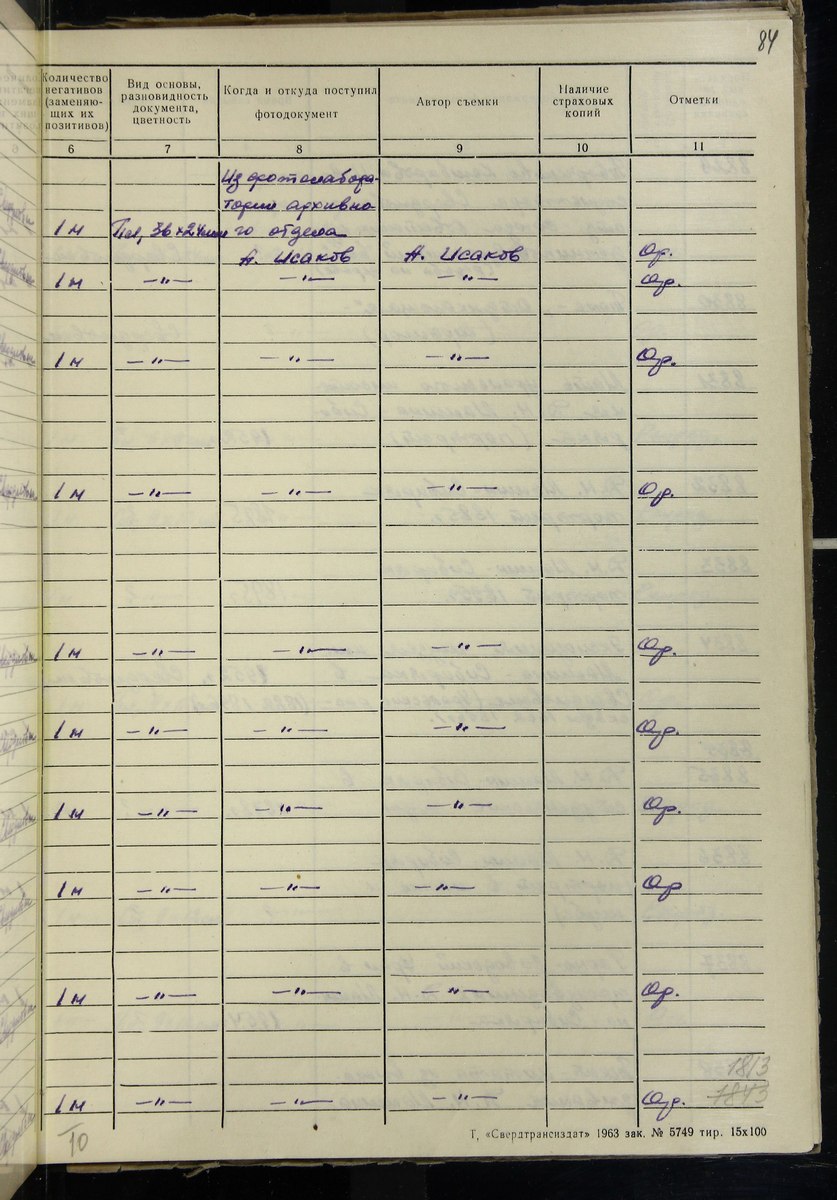 84
Количество негативов (заменяющих их позитивов)
Вид основы, разновидность документа, цветность
Когда и откуда поступил фотодокумент
Автор съемки
Наличие страховых копий
Отметки
6 7 8 9 10 11
Из фотолабора-
тории архивно-
1 н Пл, 36×24мм го отдела
А. Исаков А. Исаков Ор.
1 н —"— —"— —"— Ор.
1 н —"— —"— —"— Ор.
1 н —"— —"— —"— Ор.
1 н —"— —"— —"— Ор.
1 н —"— —"— —"— Ор.
1 н —"— —"— —"— Ор.
1 н —"— —"— —"— Ор
1 н —"— —"— —"— Ор.
1813
1 н —"— —"— —"— Ор. 1843
10
Т, «Свердтрансиздат» 1963 зак. № 5749 тир. 15х100